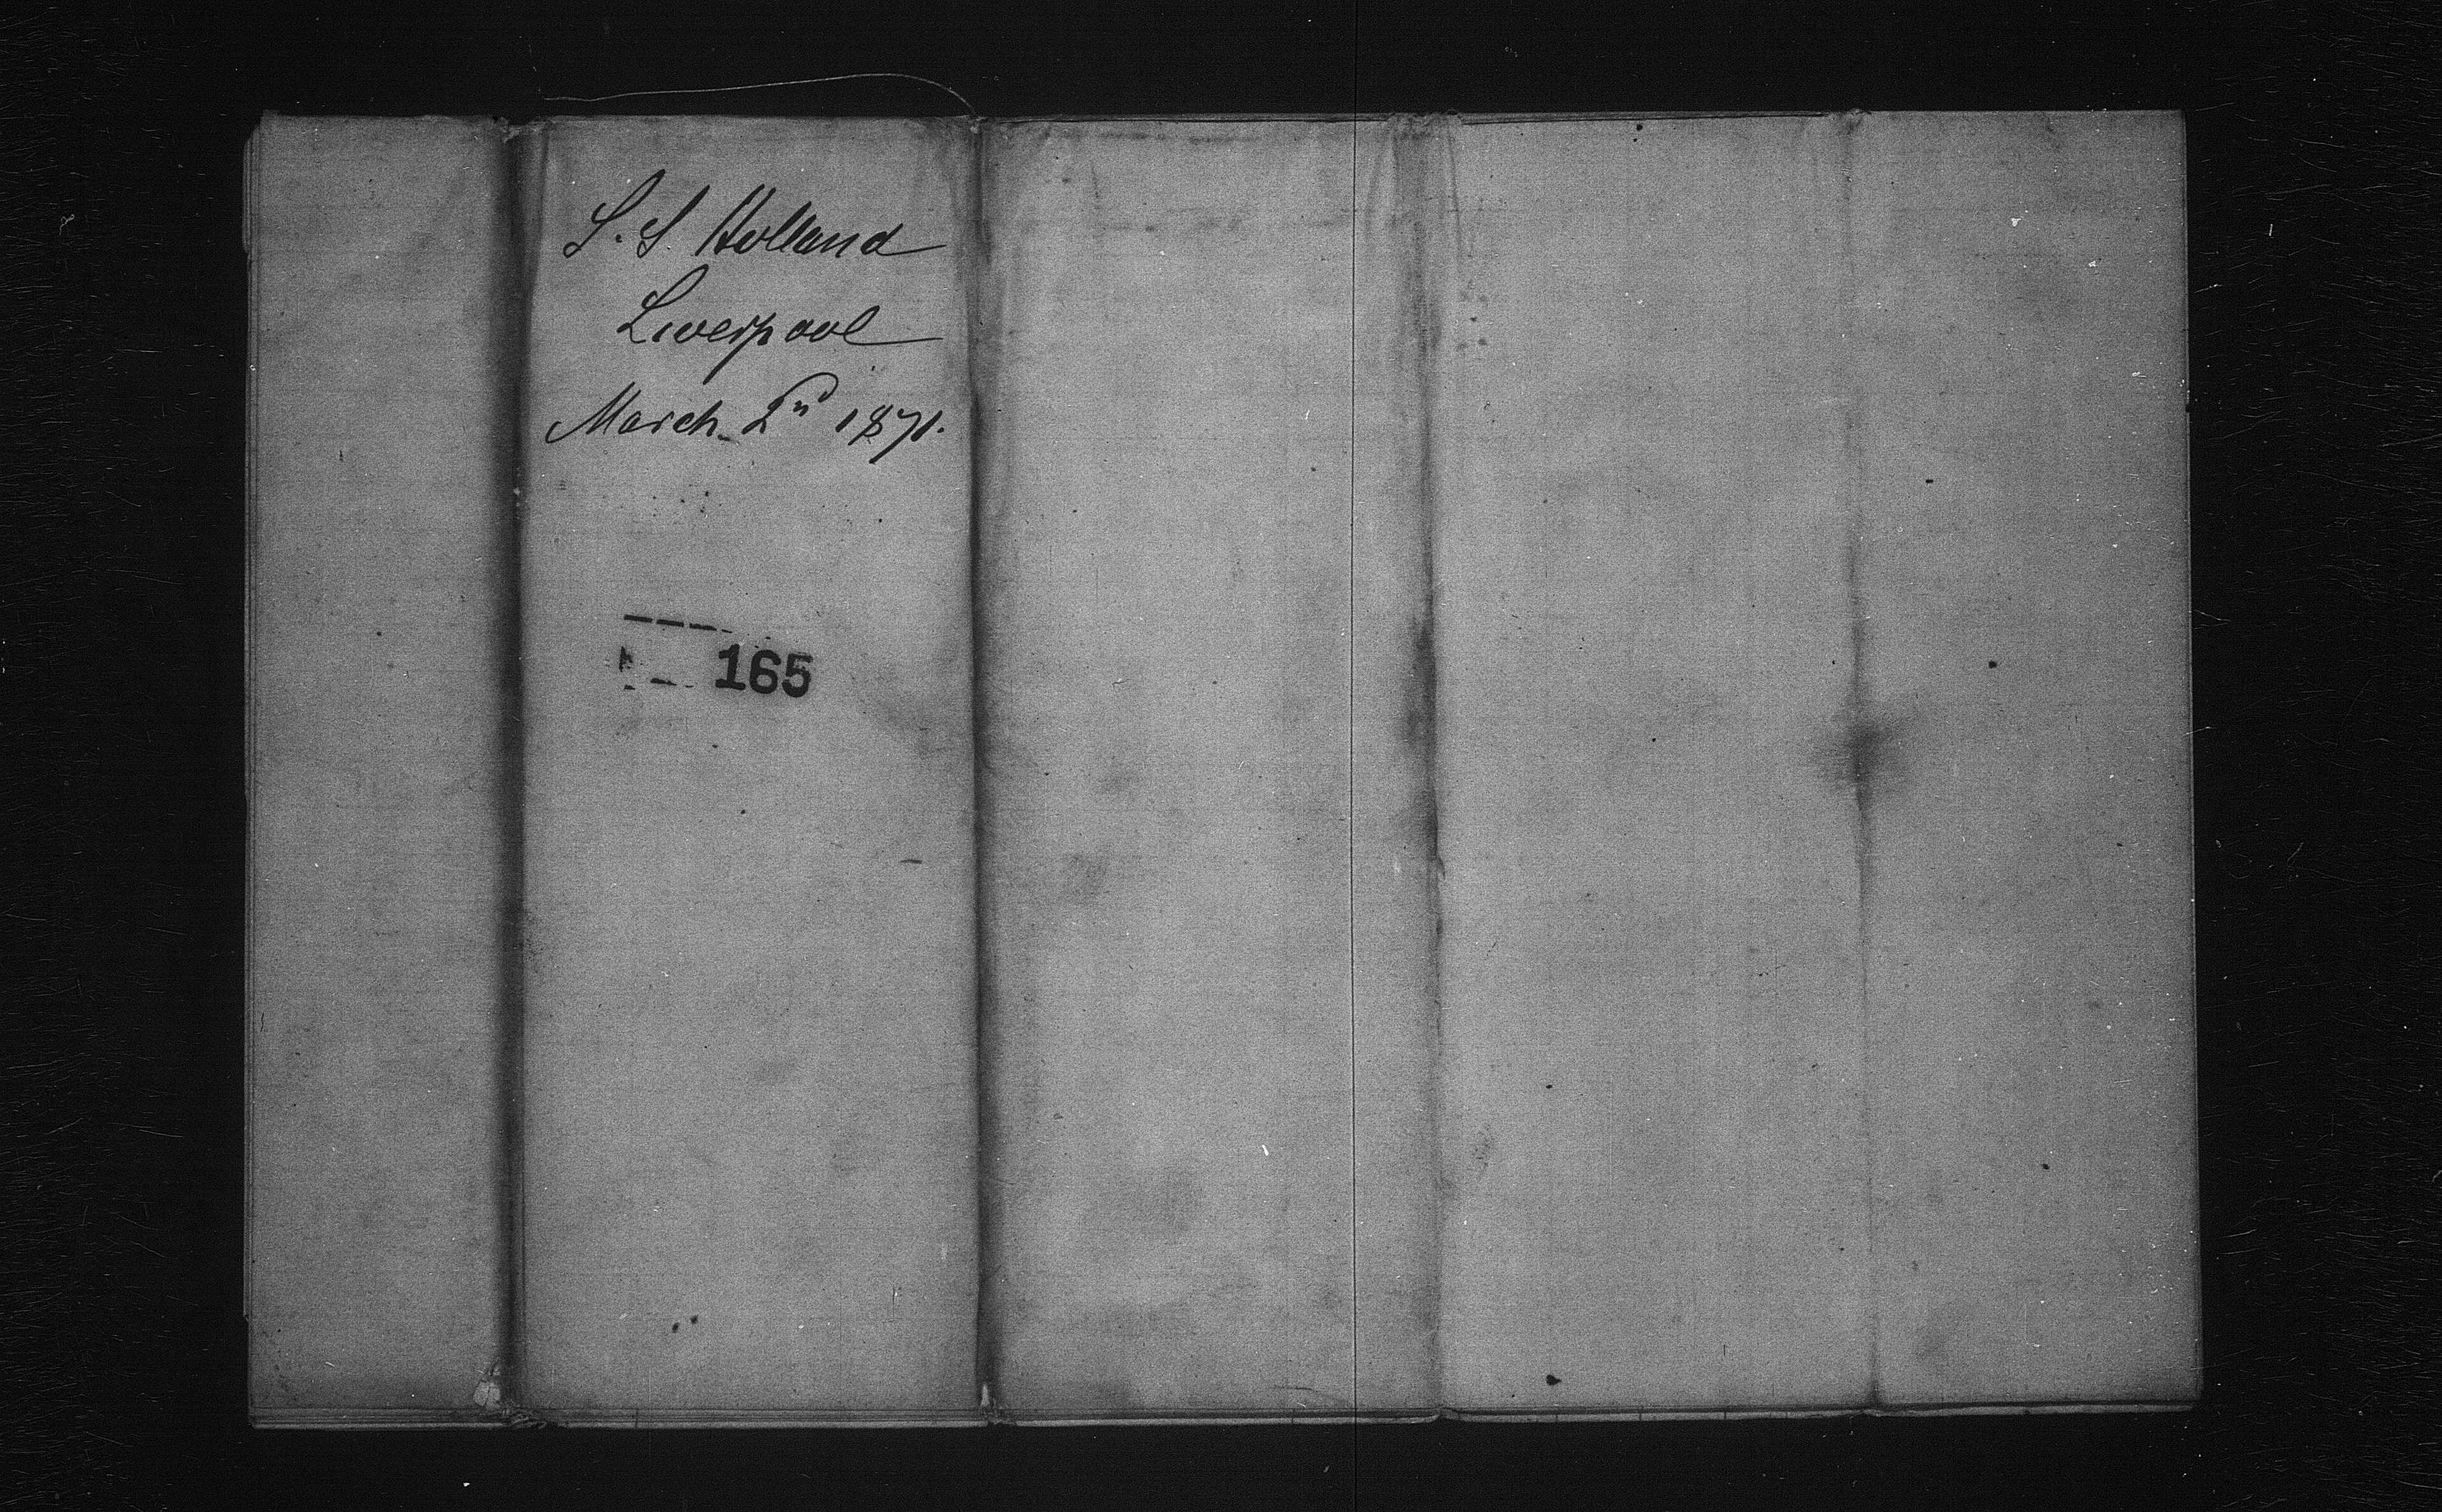 S.S. Holland
Liverpool
March 2nd 1871.
165